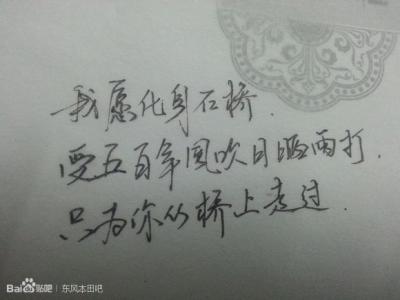 我愿化身石桥.
受五百年风吹日晒雨打.
只为你从桥上走过.
Bai度贴吧 | 东风本田吧